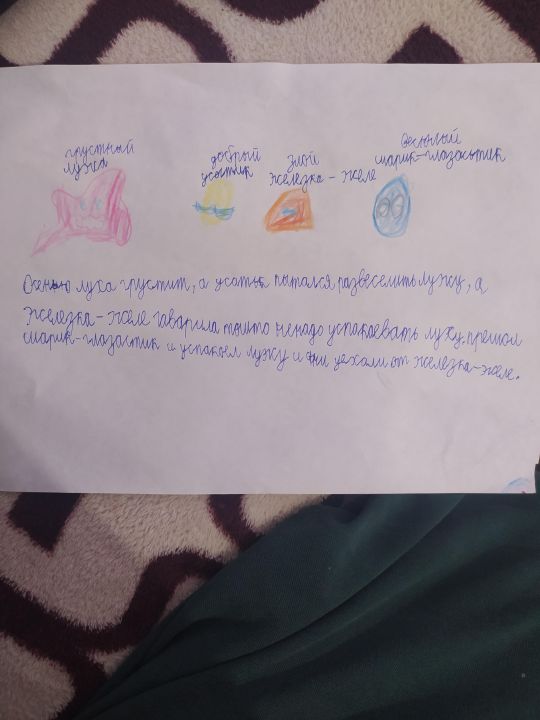 грустный
лужа
добрый
усатик
злой
железка-желе
весёлый
шарик-глазастик
Осенью лужа грустит, а усатик пытался развеселить лужу, а
железка-желе гаварила что ненадо успакаевать лужу. пришол
шарик-глазастик и успакоел лужу и они уехали от железка-желе.